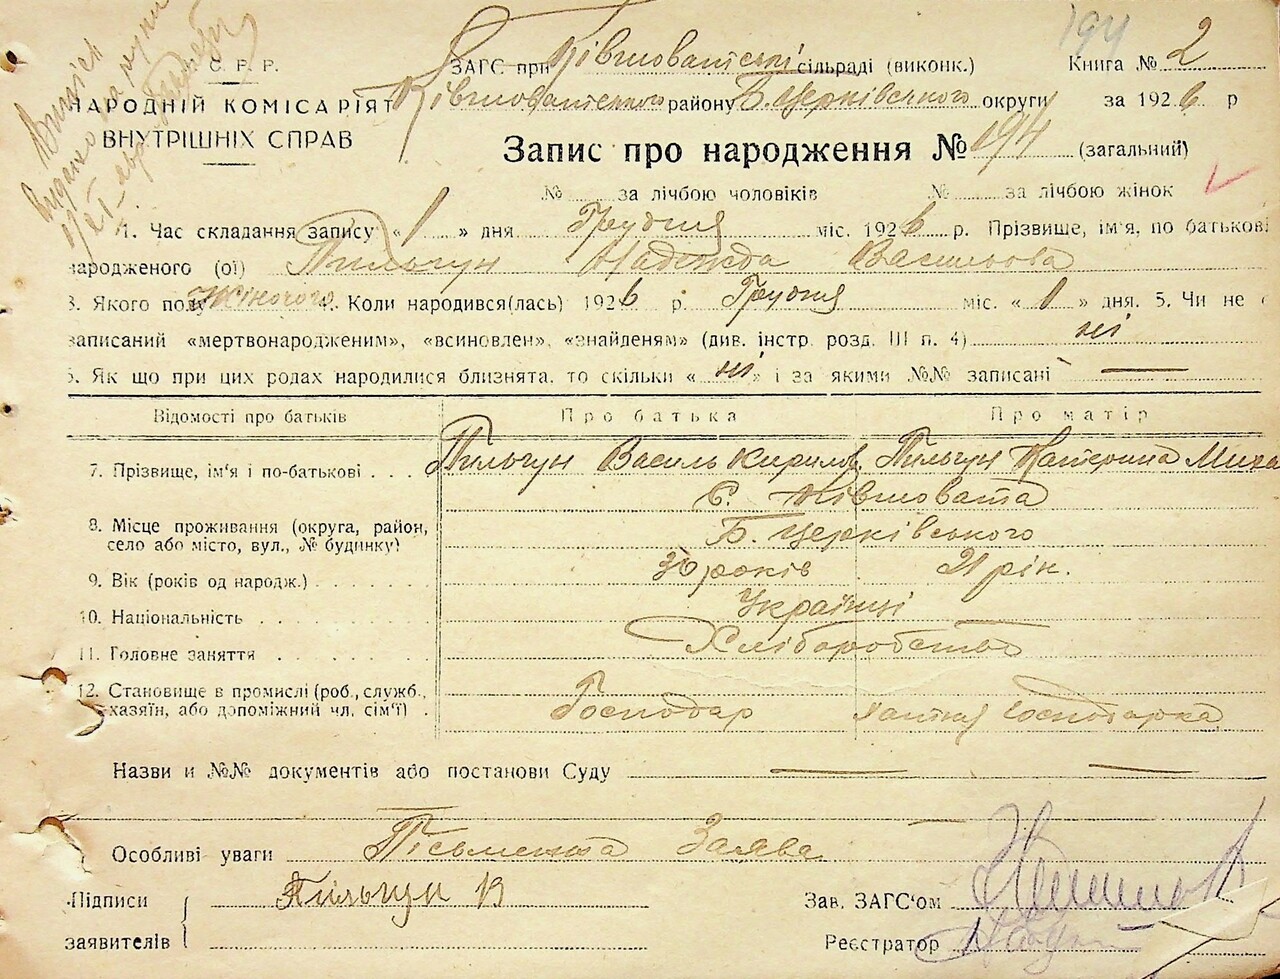 Виписк
видано на руки
С. Р. Р.
НАРОДНІЙ КОМІСАРІЯТ
ВНУТРІШНІХ СПРАВ
194
ЗАГС при Ківшоватській сільраді (виконк.) Книга № 2
Ківшоватського району Б. Церківського округи за 1926 р
Запис про народження № 194 (загальний)
№ за лічбою чоловіків № за лічбою жінок
1. Час складання запису «1» дня Грудня міс. 1926 р. Прізвище, ім'я, по батькові
народженого (ої) Пильгун Надежда Васильова
3. Якого полу Жіночого 4. Коли народився(лась) 1926 р. Грудня міс. «1» дня. 5. Чи не є
записаний «мертвонародженим», «всиновлен», «знайденям» (див. інстр. розд. III п. 4) ні
6. Як що при цих родах народилися близнята, то скільки «ні» і за якими №№ записані —
Відомості про батьків Про батька Про матір
7. Прізвище, ім'я і по-батькові . . . Пильгун Василь Кирилов. Пильгун Катерина Миха
С. Ківшовата
8. Місце проживання (округа, район, село або місто, вул., № будинку) Б. Церківського
9. Вік (років од народж.) 30 років 21 рік.
10. Національність Українці
11. Головне заняття Хліборобство
12. Становище в промислі (роб., служб., хазяїн, або допоміжний чл. сім'ї) Господар хатня господарка
Назви и №№ документів або постанови Суду — —
Особливі уваги Письменна Заява
Підписи Пильгун В Зав. ЗАГС'ом
заявителів Реєстратор